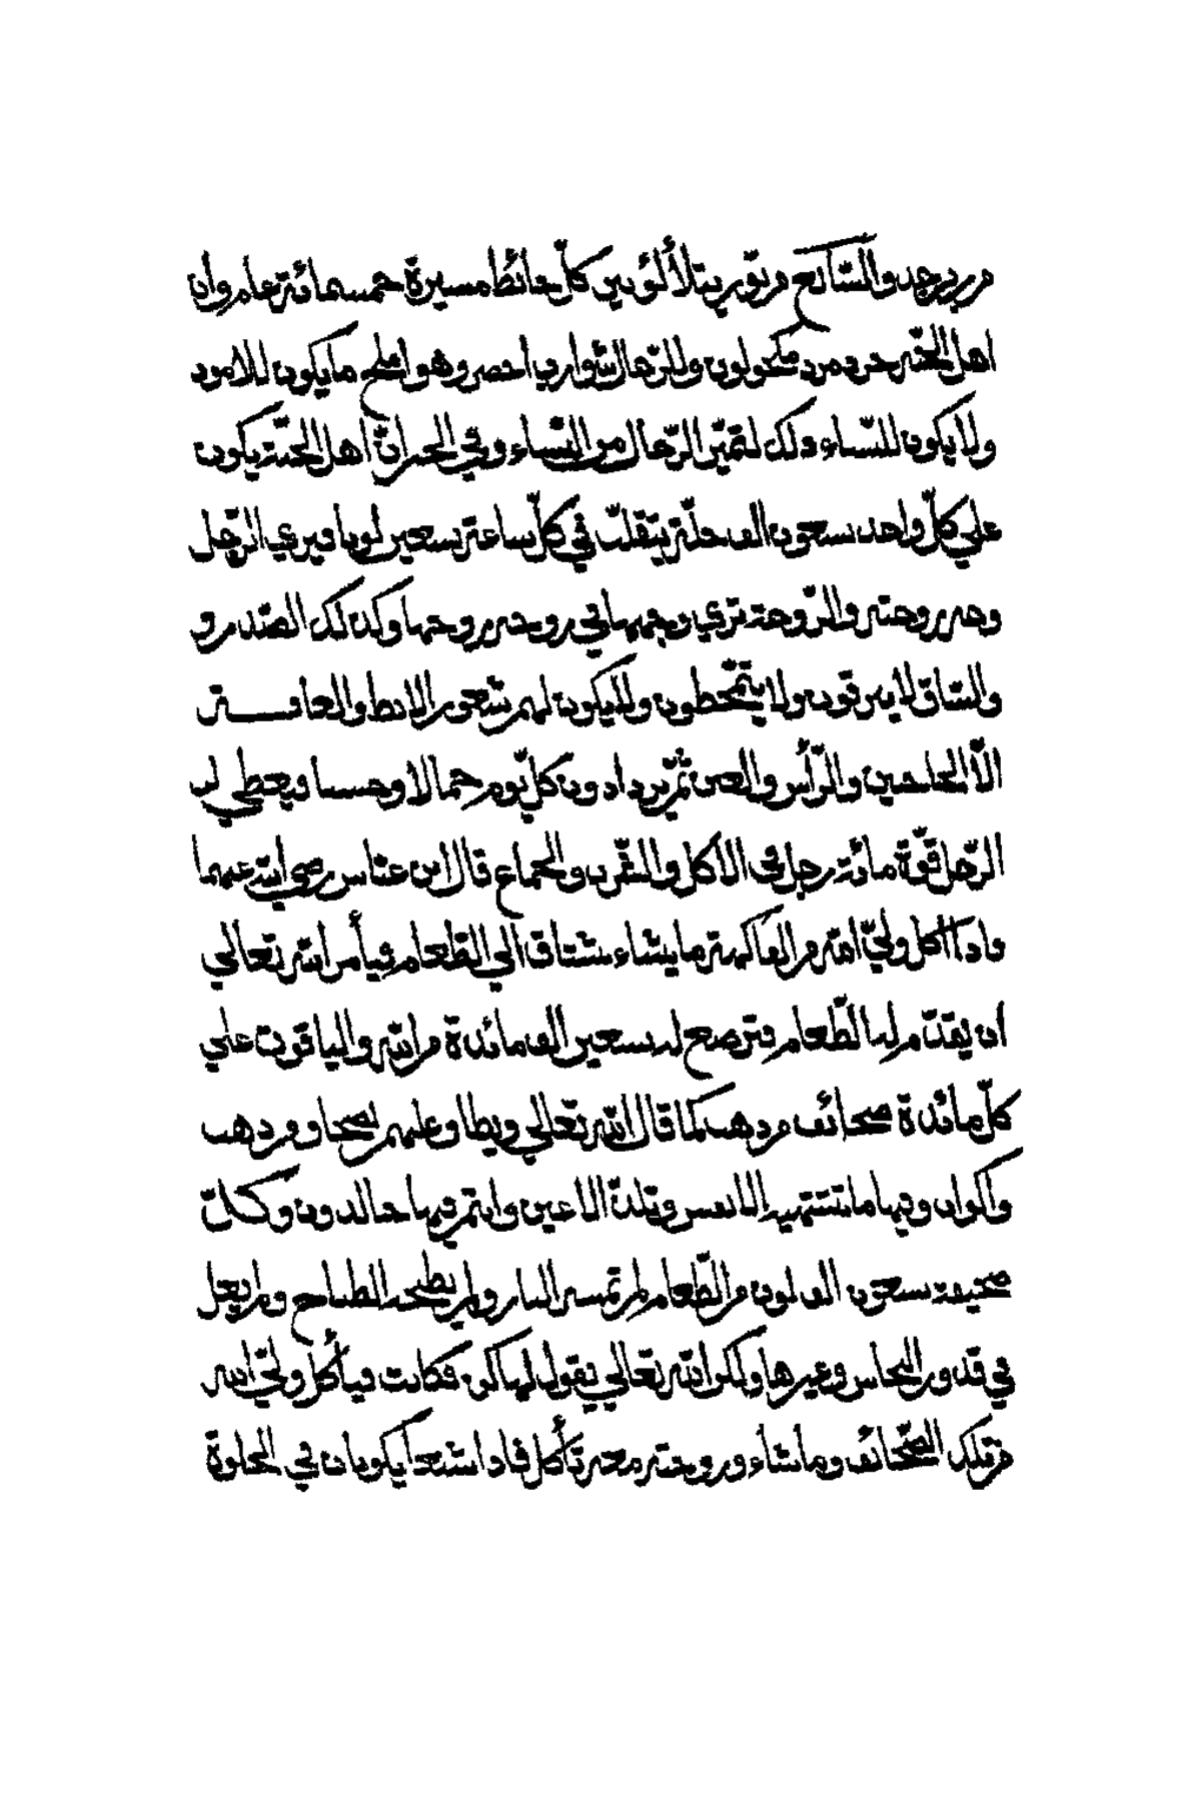 من زبرجد والسّابع من نور يتلألؤ بين كلّ حائط مسيرة خمسمائة عام وان
اهل الجنّة جرد مرد مكحولون وللرّجال شوارب اخضر وهو املح ما يكون للامرد
ولا يكون للنّساء ذلك لتميّز الرّجال من النّساء وفي الخبر انّ اهل الجنّة يكون
علي كلّ واحد سبعون الف حلّة يتقلّب في كلّ ساعة سبعين لونا فيري الرّجل
وجه زوجته والزّوجة تري وجهها في وجه زوجها وكذلك الصّدر و
والسّاق لا يبزقون ولا يتمخّطون ولا يكون لهم شعور الابط والعانة
الّا الحاجبين والرّأس والعين ثمّ يزدادون كلّ يوم جمالا وحسنا فيعطي له
الرّجل قوّة مائة رجل في الاكل والشّرب والجماع قال ابن عبّاس رضي الله عنهما
واذا اكل وليّ الله من الفاكهة ما يشاء يشتاق الي الطّعام فيأمر الله تعالي
ان يقدّم له الطّعام فترصع له سبعين الف مائدة من الله والياقوت علي
كلّ مائدة صحائف من ذهب كما قال الله تعالي ويطاف عليهم بصحاف من ذهب
واكواب وفيها ما تشتهيه الانفس وتلذّ الاعين وانتم فيها خالدون وكلّ
صحيفة سبعون الف لون من الطّعام لم تمسه النار ولم يطبخه الطباخ ولم يعمل
في قدور النحاس وغيرها ولكن الله تعالي يقول لها كن فكانت فيأكل وليّ الله
من تلك الصّحائف وما شاء وزوجته معه تأكل فاذا شبعا يكونان في الخلوة